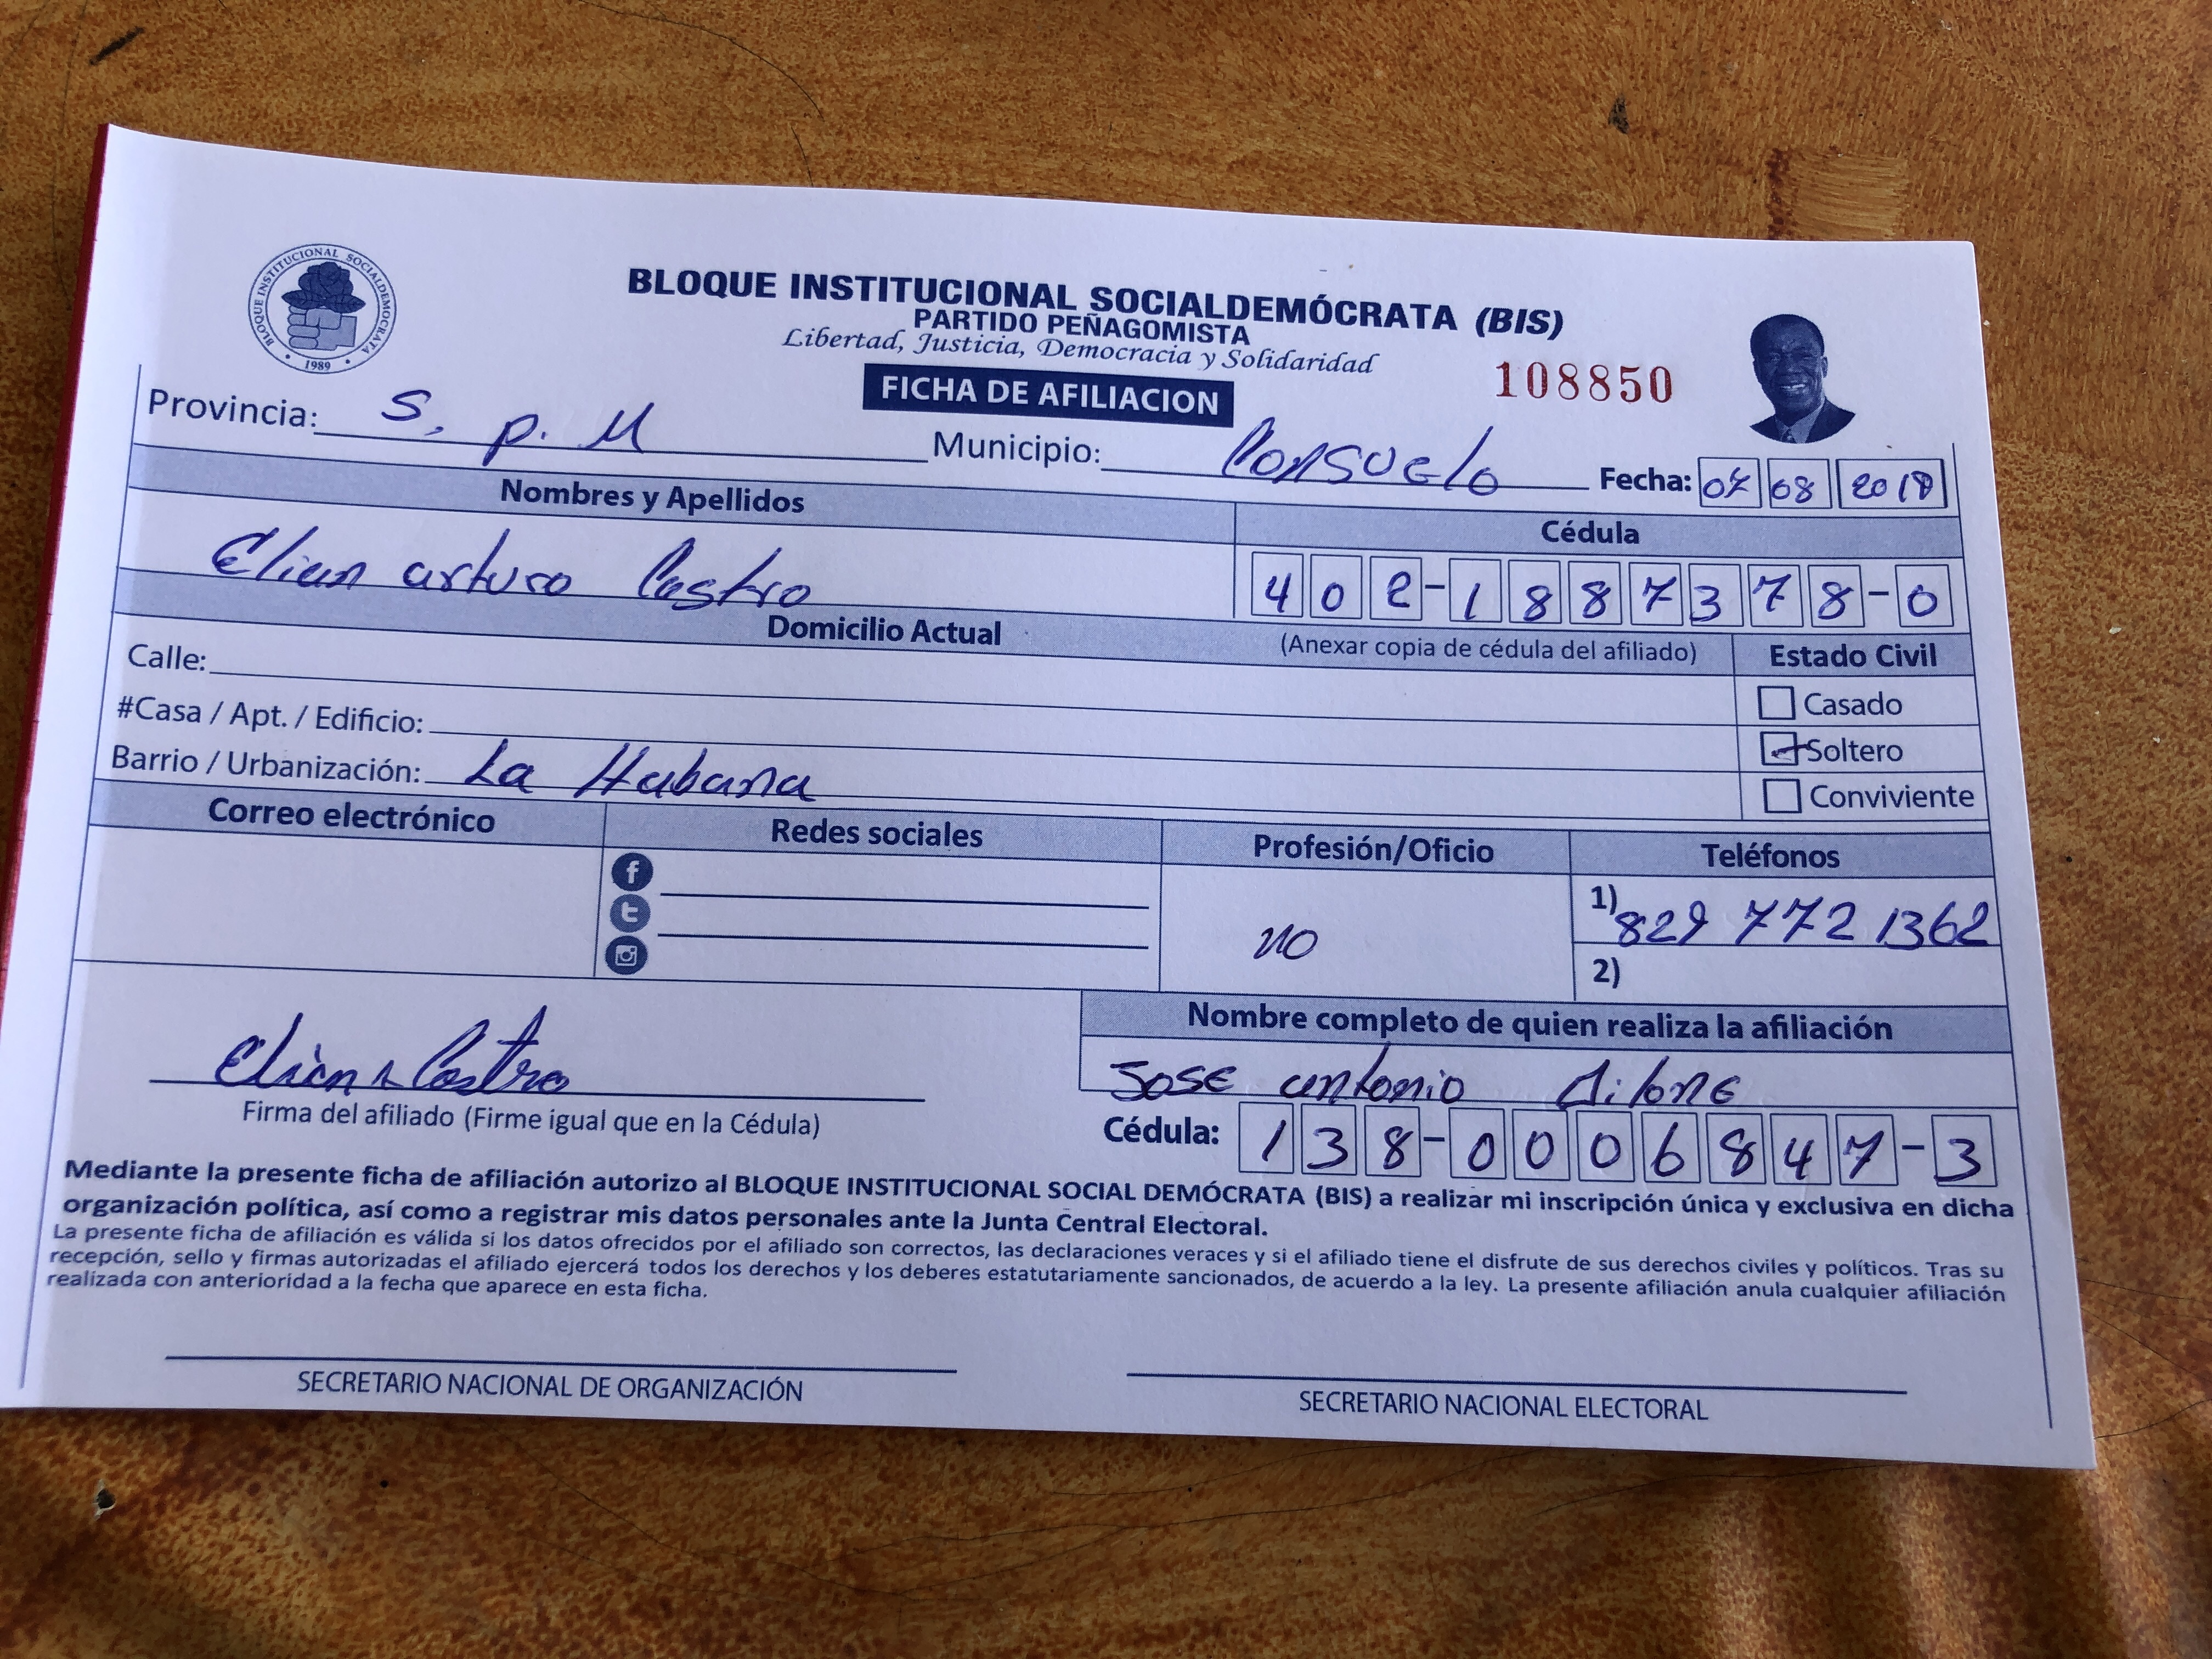 BLOQUE INSTITUCIONAL SOCIALDEMOCRATA
1989
BLOQUE INSTITUCIONAL SOCIALDEMÓCRATA (BIS)
PARTIDO PEÑAGOMISTA
Libertad, Justicia, Democracia y Solidaridad
FICHA DE AFILIACION
108850
Provincia: S. P. M Municipio: Consuelo Fecha: 07 08 2018
Nombres y Apellidos Cédula
Elian arturo Castro 402-1887378-0
Domicilio Actual (Anexar copia de cédula del afiliado) Estado Civil
Calle: Casado
#Casa / Apt. / Edificio: Soltero
Barrio / Urbanización: La Habana Conviviente
Correo electrónico Redes sociales Profesión/Oficio Teléfonos
no 1) 829 772 1362
2)
Nombre completo de quien realiza la afiliación
Elian A Castro Jose antonio
Firma del afiliado (Firme igual que en la Cédula) Cédula: 138-0006847-3
Mediante la presente ficha de afiliación autorizo al BLOQUE INSTITUCIONAL SOCIAL DEMÓCRATA (BIS) a realizar mi inscripción única y exclusiva en dicha
organización política, así como a registrar mis datos personales ante la Junta Central Electoral.
La presente ficha de afiliación es válida si los datos ofrecidos por el afiliado son correctos, las declaraciones veraces y si el afiliado tiene el disfrute de sus derechos civiles y políticos. Tras su
recepción, sello y firmas autorizadas el afiliado ejercerá todos los derechos y los deberes estatutariamente sancionados, de acuerdo a la ley. La presente afiliación anula cualquier afiliación
realizada con anterioridad a la fecha que aparece en esta ficha.
SECRETARIO NACIONAL DE ORGANIZACIÓN SECRETARIO NACIONAL ELECTORAL